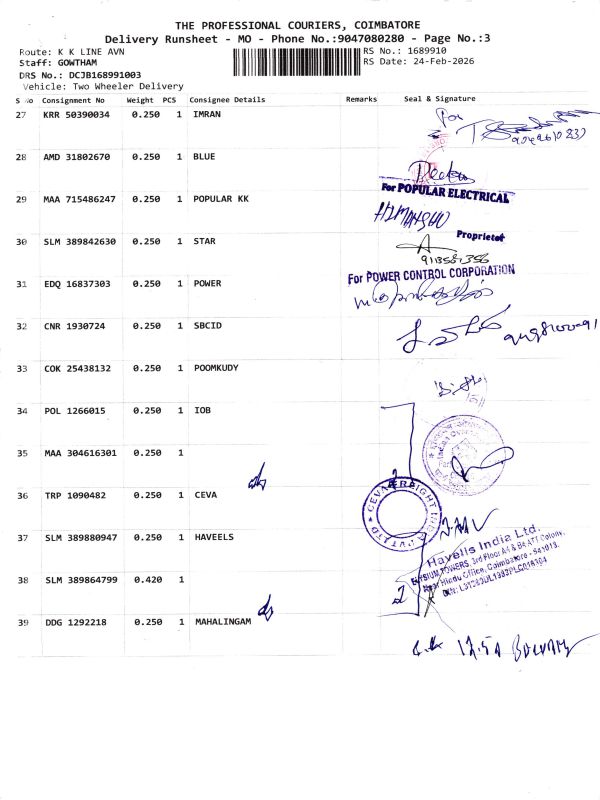 THE PROFESSIONAL COURIERS, COIMBATORE
Delivery Runsheet - MO - Phone No.:9047080280 - Page No.:3
Route: K K LINE AVN
RS No.: 1689910
Staff: GOWTHAM
RS Date: 24-Feb-2026
DRS No.: DCJB168991003
Vehicle: Two Wheeler Delivery
S No Consignment No Weight PCS Consignee Details Remarks Seal & Signature
27 KRR 50390034 0.250 1 IMRAN
28 AMD 31802670 0.250 1 BLUE
For POPULAR ELECTRICAL
29 MAA 715486247 0.250 1 POPULAR KK
HIMANSHU
Proprietor
30 SLM 389842630 0.250 1 STAR
For POWER CONTROL CORPORATION
31 EDQ 16837303 0.250 1 POWER
32 CNR 1930724 0.250 1 SBCID
33 COK 25438132 0.250 1 POOMKUDY
34 POL 1266015 0.250 1 IOB
35 MAA 304616301 0.250 1
36 TRP 1090482 0.250 1 CEVA
CEVA FREIGHT PVT LTD
37 SLM 389880947 0.250 1 HAVEELS
Havells India Ltd.
TOWERS, 3rd Floor A4 & B4 ATT Colony,
Near Hindu Office, Coimbatore - 641018.
38 SLM 389864799 0.420 1
39 DDG 1292218 0.250 1 MAHALINGAM